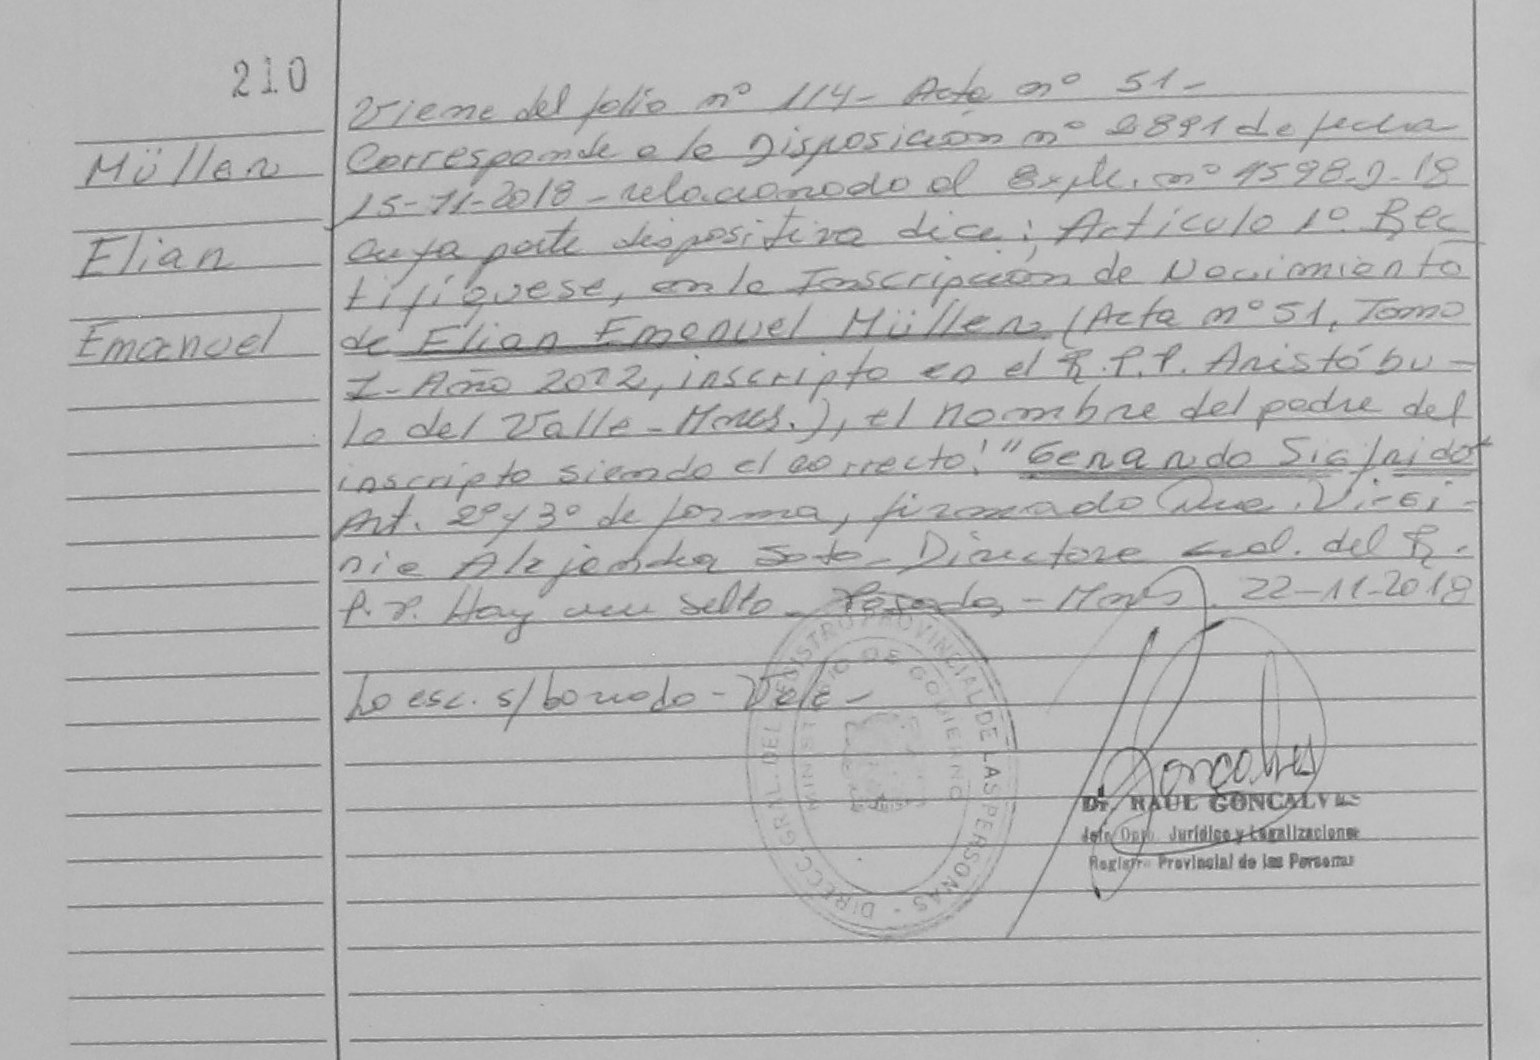 210
Müller
Elian
Emanuel
Viene del folio nº 114- Acta nº 51-
Corresponde a la Disposición nº 2891 de fecha
15-11-2018 - relacionado al Expte. nº 1598-J-18
cuya parte dispositiva dice: Artículo 1º Rec
tifíquese, en la Inscripción de Nacimiento
de Elian Emanuel Müller (Acta nº 51, Tomo
I- Año 2012, inscripto en el R.P.P. Aristóbu-
lo del Valle - Mnes.), el nombre del padre del
inscripto siendo el correcto: "Gerardo Sigfrido"
Art. 2º y 3º de forma, firmado Dra. Virgi-
nia Alejandra Soto - Directora Gral. del R.
P.P. Hay un sello - Posadas - Mnes. 22-11-2018
Lo esc. s/ borrado - Vale -
DIRECC. GRAL. DEL REGISTRO PROVINCIAL DE LAS PERSONAS -
MINISTERIO DE GOBIERNO
Goncalves
Dr. RAUL GONCALVES
Jefe Dpto. Jurídico y Legalizaciones
Registro Provincial de las Personas